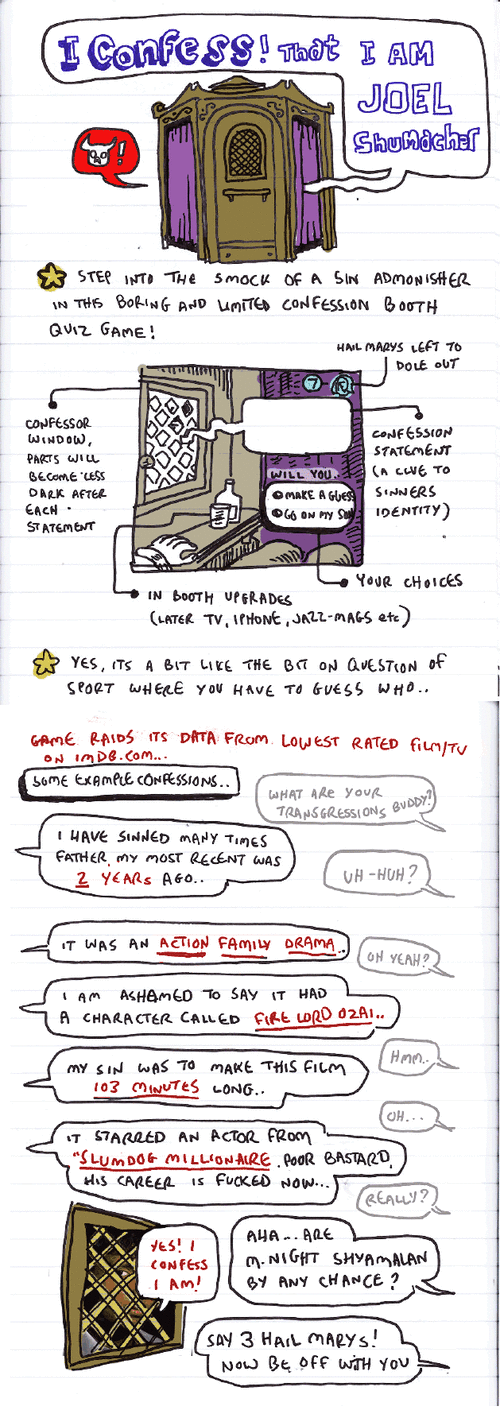 I Confess! That I AM
JOEL
Shumacher
!
STEP INTO THE SMOCK OF A SIN ADMONISHER
IN THIS BORING AND LIMITED CONFESSION BOOTH
QUIZ GAME!
HAIL MARYS LEFT TO
DOLE OUT
7
CONFESSOR
WINDOW,
PARTS WILL
BECOME LESS
DARK AFTER
EACH
STATEMENT
CONFESSION
STATEMENT
(A CLUE TO
SINNERS
IDENTITY)
WILL YOU..
MAKE A GUESS
GO ON MY SON
YOUR CHOICES
IN BOOTH UPGRADES
(LATER TV, IPHONE, JAZZ-MAGS etc)
YES, ITS A BIT LIKE THE BIT ON QUESTION OF
SPORT WHERE YOU HAVE TO GUESS WHO..
GAME RAIDS ITS DATA FROM LOWEST RATED FILM/TV
ON IMDB.COM...
SOME EXAMPLE CONFESSIONS..
WHAT ARE YOUR
TRANSGRESSIONS BUDDY?
I HAVE SINNED MANY TIMES
FATHER, MY MOST RECENT WAS
2 YEARS AGO..
UH-HUH?
IT WAS AN ACTION FAMILY DRAMA..
OH YEAH?
I AM ASHAMED TO SAY IT HAD
A CHARACTER CALLED FIRE LORD OZAI..
HMM..
MY SIN WAS TO MAKE THIS FILM
103 MINUTES LONG..
OH...
IT STARRED AN ACTOR FROM
"SLUMDOG MILLIONAIRE. POOR BASTARD,
HIS CAREER IS FUCKED NOW...
REALLY?
AHA... ARE
M. NIGHT SHYAMALAN
BY ANY CHANCE?
YES! I
CONFESS
I AM!
SAY 3 HAIL MARYS!
NOW BE OFF WITH YOU